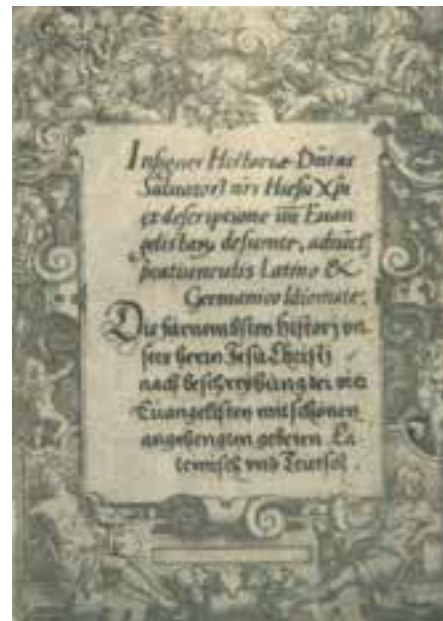 Insignes Historiæ Dñicæ
Saluatoris nři Hiesu Xpi
ex descriptione iiii Euan
gelistarũ desumte, adiũct
Latino &
Germanico Idiomate.
Die fürnembsten histori vn
sers herrn Jesu Christj
nach beschreybung der
Euangelisten mit schönen
angehengten gebeten La
teinisch vnd Teutsch.